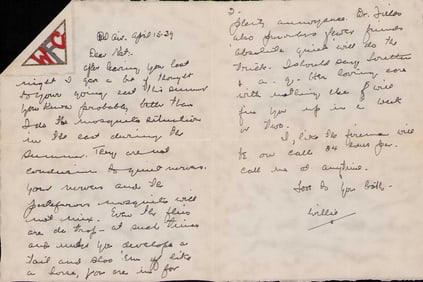 WFC
Bel Air. April 18-39
Dear Nat:
after leaving you last
night I gave a bit of thought
to your going east this summer
you know probably better than
I do the mosquito situation
in the East during the
summer. They are not
conducive to quiet nerves.
Your nerves and the
mosquitos will
not mix. Even the flies
are de trop - at such times
and unless you develope a
tail and shoo 'em off like
a horse, you are in for
2.
plenty annoyance. Dr. Fields
also
absolute quiet will do the
trick. I should say
&
with nothing else will
fix you up in a week
or two.
I, like the firemen will
be on call 24 hours per.
call me at anytime.
Love to you both -
Willie